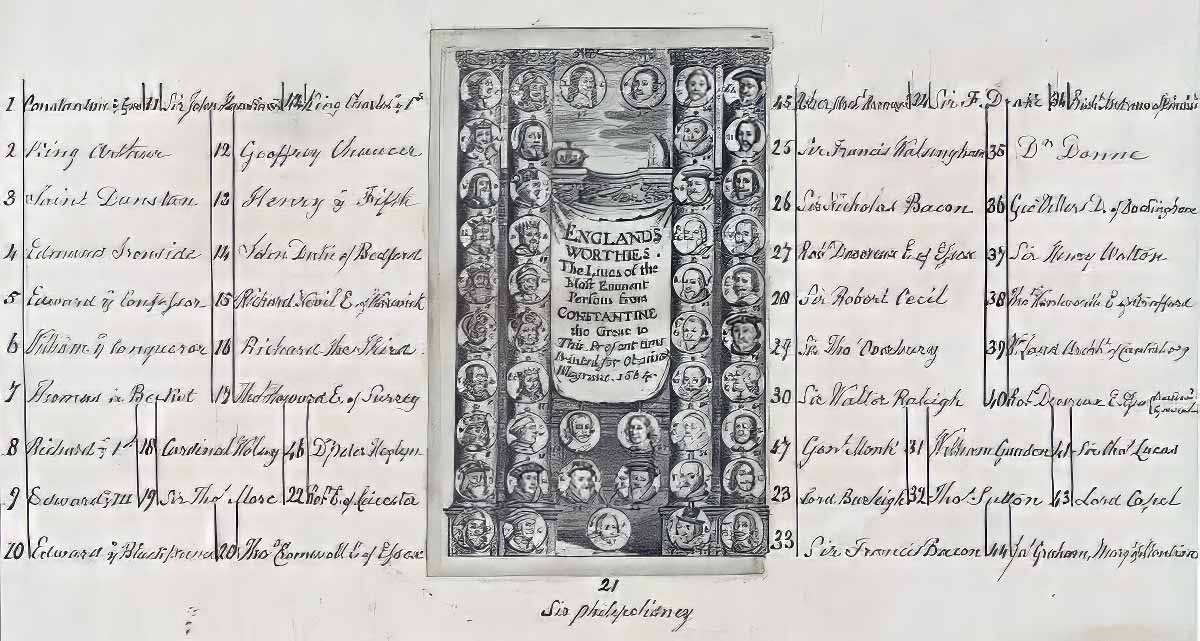 1 Constantine ye Great 11 Sir John 42 King Charles ye 1st
2 King Arthur 12 Geoffroy Chaucer
3 Saint Dunstan 13 Henry ye Fifth
4 Edmund Ironside 14 John Duke of Bedford
5 Edward ye Confessor 15 Richard Nevil E. of Warwick
6 William ye Conqueror 16 Richard the Third
7 Thomas Becket 17 Thos Howard E. of Surrey
8 Richard ye 1st 18 Cardinal Wolsey 46 Dr Peter Heylyn
9 Edward ye III 19 Sir Thos More 22 Robt E. of Leicester
10 Edward ye Black Prince 20 Thos Cromwell E. of Essex
ENGLANDS
WORTHIES.
The Lives of the
Most Eminent
Persons from
CONSTANTINE
the Great to
This Present time
Printed for Obadiah
Blagrave. 1684.
21
Sir philip sidney
45 24 Sir F. Drake 34
25 Sir Francis Walsingham 35 Dr Donne
26 Sir Nicholas Bacon 36 Geo Villers D. of Buckingham
27 Robt Devereux E. of Essex 37 Sir Henry Wotton
28 Sir Robert Cecil 38 Thos Wentworth E. of Strafford
29 Sir Thos Overbury 39 Wm Laud Archbp of Canterbury
30 Sir Walter Raleigh 40 Robt Devereux E. Essex
47 Genl Monk 31 William Camden 41 Sir Thos Lucas
23 Lord Burleigh 32 Thos Sutton 43 Lord Capel
33 Sir Francis Bacon 44 Jas Graham, Marqs of Montrose